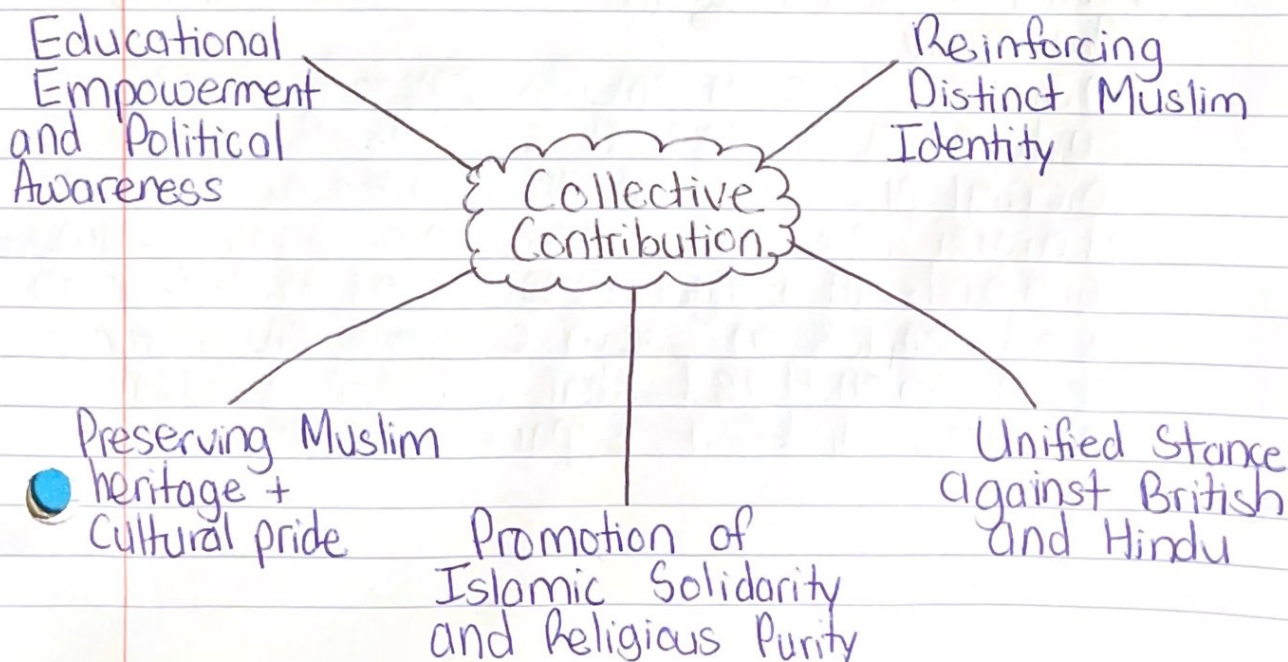 Educational
Empowerment
and Political
Awareness
Reinforcing
Distinct Muslim
Identity
Collective
Contribution
Preserving Muslim
heritage +
Cultural pride
Promotion of
Islamic Solidarity
and Religious Purity
Unified Stance
against British
and Hindu